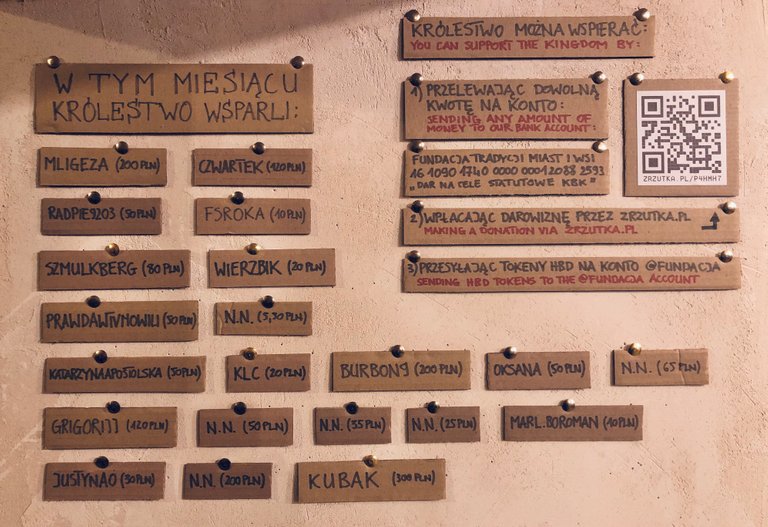 W TYM MIESIĄCU
KRÓLESTWO WSPARLI:
MLIGEZA (200 PLN)
CZWARTEK (120 PLN)
RADPIE9203 (50 PLN)
FSROKA (10 PLN)
SZMULKBERG (80 PLN)
WIERZBIK (20 PLN)
PRAWDAWTVNOWILI (50 PLN)
N.N. (5,50 PLN)
KATARZYNAAPOSTOLSKA (50 PLN)
KLC (20 PLN)
BURBON9 (200 PLN)
OKSANA (50 PLN)
N.N. (65 PLN)
GRIGORIJJ (120 PLN)
N.N. (50 PLN)
N.N. (35 PLN)
N.N. (25 PLN)
MARL.BOROMAN (10 PLN)
JUSTYNAO (30 PLN)
N.N. (200 PLN)
KUBAK (300 PLN)
KRÓLESTWO MOŻNA WSPIERAĆ:
YOU CAN SUPPORT THE KINGDOM BY:
1) PRZELEWAJĄC DOWOLNĄ
KWOTĘ NA KONTO:
SENDING ANY AMOUNT OF
MONEY TO OUR BANK ACCOUNT:
FUNDACJA TRADYCJI MIAST I WSI
16 1090 1740 0000 0001 2088 2593
"DAR NA CELE STATUTOWE KBK"
ZRZUTKA.PL/P4HMH7
2) WPŁACAJĄC DAROWIZNĘ PRZEZ ZRZUTKA.PL
MAKING A DONATION VIA ZRZUTKA.PL
3) PRZESYŁAJĄC TOKENY HBD NA KONTO @FUNDACJA
SENDING HBD TOKENS TO THE @FUNDACJA ACCOUNT